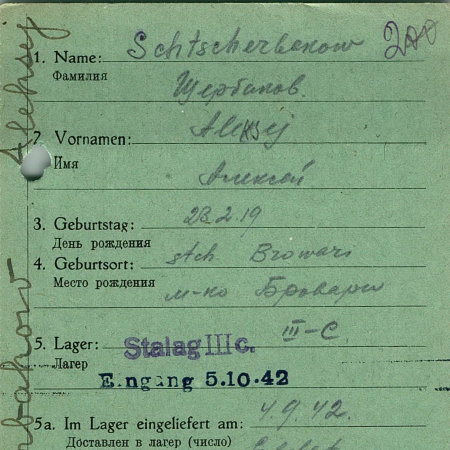 200
1. Name: Schtscherbakow
Фамилия
Щербаков.
2. Vornamen: Aleksej
Имя
Алексей
3. Geburtstag: 23.2.19
День рождения
4. Geburtsort: stch. Browari
Место рождения м-ко Бровары
5. Lager: III-C.
Лагер
Stalag III c.
Eingang 5.10.42
5a. Im Lager eingeliefert am: 4.9.42.
Доставлен в лагер (число)
Aleksej